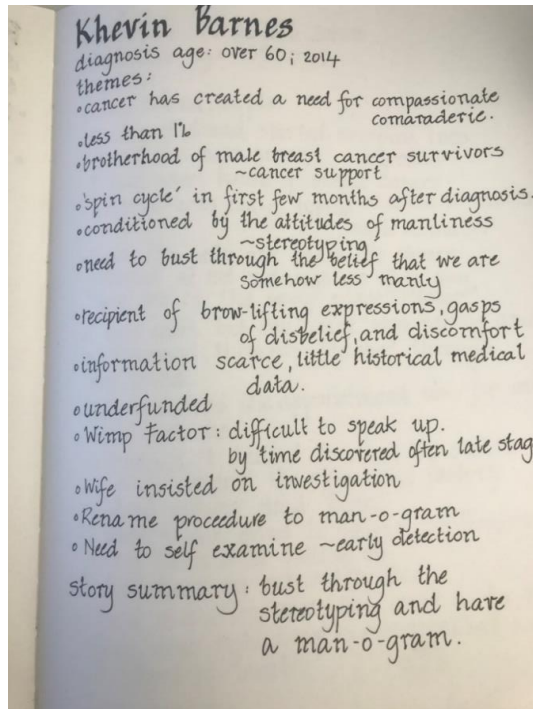 Khevin Barnes
diagnosis age: over 60; 2014
themes:
•cancer has created a need for compassionate
comaraderie.
•less than 1%
•brotherhood of male breast cancer survivors
~cancer support
•'spin cycle' in first few months after diagnosis.
•conditioned by the attitudes of manliness
~stereotyping
•need to bust through the belief that we are
somehow less manly
•recipient of brow-lifting expressions, gasps
of disbelief, and discomfort
•information scarce, little historical medical
data.
•underfunded
•Wimp Factor: difficult to speak up.
by time discovered often late stag
•Wife insisted on investigation
•Rename proceedure to man-o-gram
•Need to self examine ~early detection
story summary: bust through the
stereotyping and have
a man-o-gram.